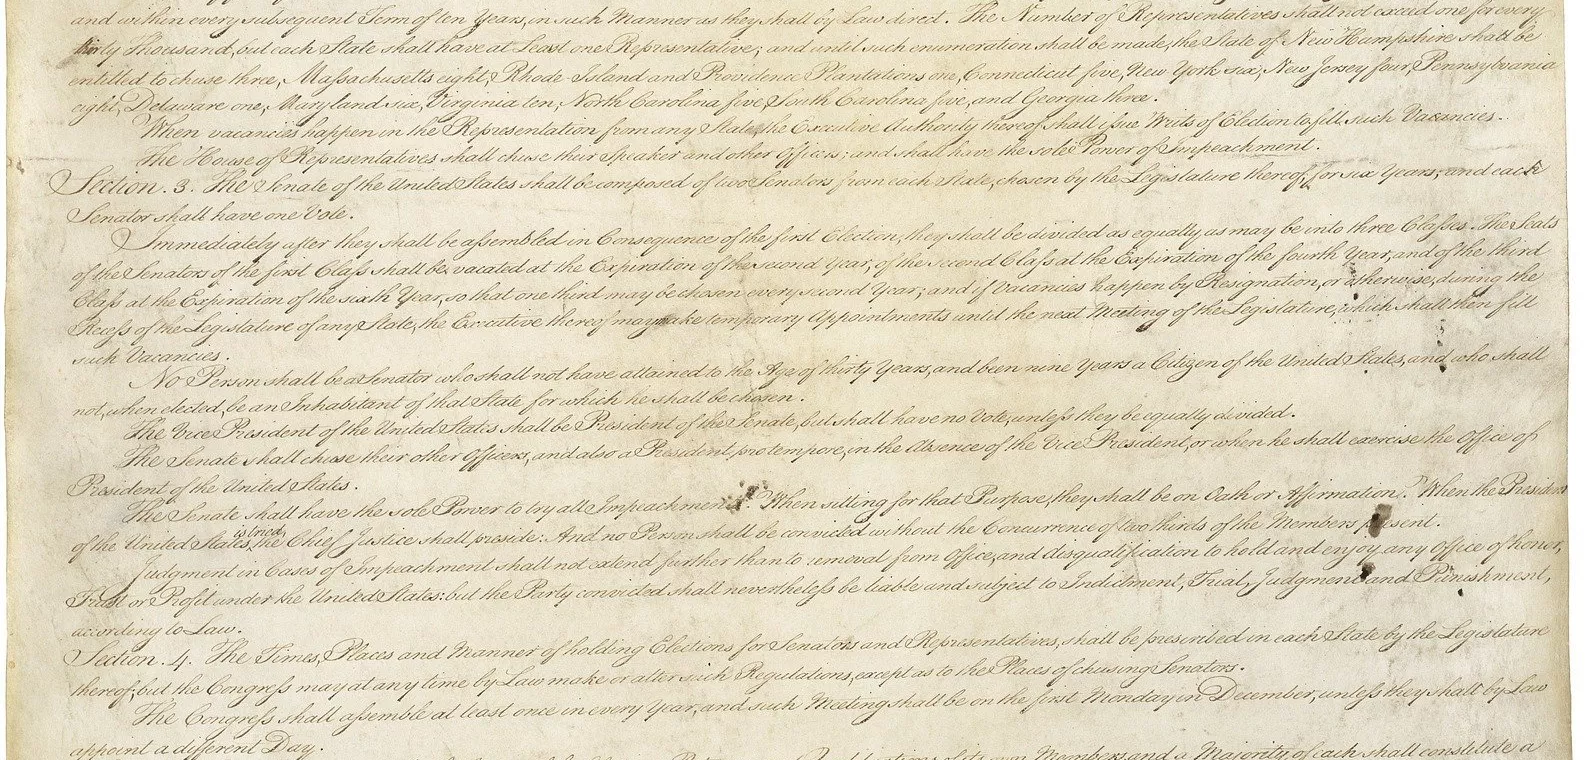 and within every subsequent Term of ten Years, in such Manner as they shall by Law direct. The Number of Representatives shall not exceed one for every
thirty Thousand, but each State shall have at Least one Representative; and until such enumeration shall be made, the State of New Hampshire shall be
entitled to chuse three, Massachusetts eight, Rhode-Island and Providence Plantations one, Connecticut five, New-York six, New Jersey four, Pennsylvania
eight, Delaware one, Maryland six, Virginia ten, North Carolina five, South Carolina five, and Georgia three.
When vacancies happen in the Representation from any State, the Executive Authority thereof shall issue Writs of Election to fill such Vacancies.
The House of Representatives shall chuse their Speaker and other Officers; and shall have the sole Power of Impeachment.
Section. 3. The Senate of the United States shall be composed of two Senators from each State, chosen by the Legislature thereof, for six Years; and each
Senator shall have one Vote.
Immediately after they shall be assembled in Consequence of the first Election, they shall be divided as equally as may be into three Classes. The Seats
of the Senators of the first Class shall be vacated at the Expiration of the second Year, of the second Class at the Expiration of the fourth Year, and of the third
Class at the Expiration of the sixth Year, so that one third may be chosen every second Year; and if Vacancies happen by Resignation, or otherwise, during the
Recess of the Legislature of any State, the Executive thereof may make temporary Appointments until the next Meeting of the Legislature, which shall then fill
such Vacancies.
No Person shall be a Senator who shall not have attained to the Age of thirty Years, and been nine Years a Citizen of the United States, and who shall
not, when elected, be an Inhabitant of that State for which he shall be chosen.
The Vice President of the United States shall be President of the Senate, but shall have no Vote, unless they be equally divided.
The Senate shall chuse their other Officers, and also a President pro tempore, in the Absence of the Vice President, or when he shall exercise the Office of
President of the United States.
The Senate shall have the sole Power to try all Impeachments. When sitting for that Purpose, they shall be on Oath or Affirmation. When the President
of the United States is tried, the Chief Justice shall preside: And no Person shall be convicted without the Concurrence of two thirds of the Members present.
Judgment in Cases of Impeachment shall not extend further than to removal from Office, and disqualification to hold and enjoy any Office of honor,
Trust or Profit under the United States: but the Party convicted shall nevertheless be liable and subject to Indictment, Trial, Judgment and Punishment,
according to Law.
Section. 4. The Times, Places and Manner of holding Elections for Senators and Representatives, shall be prescribed in each State by the Legislature
thereof; but the Congress may at any time by Law make or alter such Regulations, except as to the Places of chusing Senators.
The Congress shall assemble at least once in every Year, and such Meeting shall be on the first Monday in December, unless they shall by Law
appoint a different Day.
own Members, and a Majority of each shall constitute a